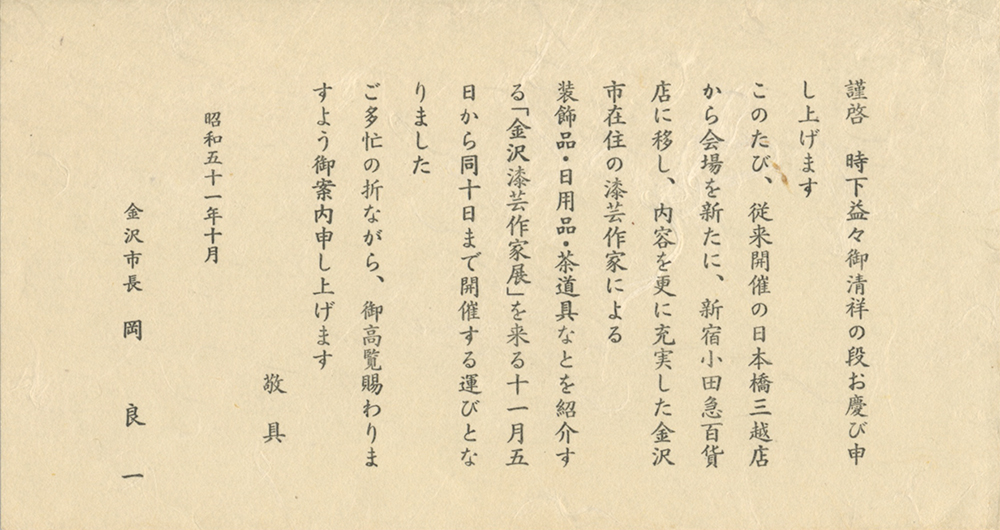 謹啓　時下益々御清祥の段お慶び申
し上げます
このたび、従来開催の日本橋三越店
から会場を新たに、新宿小田急百貨
店に移し、内容を更に充実した金沢
市在住の漆芸作家による
装飾品・日用品・茶道具なとを紹介す
る「金沢漆芸作家展」を来る十一月五
日から同十日まで開催する運びとな
りました
ご多忙の折ながら、御高覧賜わりま
すよう御案内申し上げます
敬具
昭和五十一年十月
金沢市長　岡良一